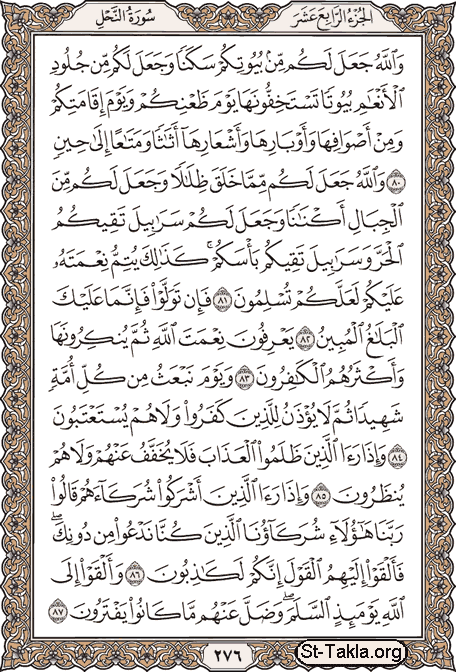 الجُزْءُ الرَّابِعَ عَشَرَ
سُورَةُ النَّحْلِ
وَٱللَّهُ جَعَلَ لَكُم مِّنۢ بُيُوتِكُمْ سَكَنًا وَجَعَلَ لَكُم مِّن جُلُودِ
ٱلْأَنْعَٰمِ بُيُوتًا تَسْتَخِفُّونَهَا يَوْمَ ظَعْنِكُمْ وَيَوْمَ إِقَامَتِكُمْ
وَمِنْ أَصْوَافِهَا وَأَوْبَارِهَا وَأَشْعَارِهَآ أَثَٰثًا وَمَتَٰعًا إِلَىٰ حِينٍ
٨٠ وَٱللَّهُ جَعَلَ لَكُم مِّمَّا خَلَقَ ظِلَٰلًا وَجَعَلَ لَكُم مِّنَ
ٱلْجِبَالِ أَكْنَٰنًا وَجَعَلَ لَكُمْ سَرَٰبِيلَ تَقِيكُمُ
ٱلْحَرَّ وَسَرَٰبِيلَ تَقِيكُم بَأْسَكُمْ ۚ كَذَٰلِكَ يُتِمُّ نِعْمَتَهُۥ
عَلَيْكُمْ لَعَلَّكُمْ تُسْلِمُونَ ٨١ فَإِن تَوَلَّوْا۟ فَإِنَّمَا عَلَيْكَ
ٱلْبَلَٰغُ ٱلْمُبِينُ ٨٢ يَعْرِفُونَ نِعْمَتَ ٱللَّهِ ثُمَّ يُنكِرُونَهَا
وَأَكْثَرُهُمُ ٱلْكَٰفِرُونَ ٨٣ وَيَوْمَ نَبْعَثُ مِن كُلِّ أُمَّةٍ
شَهِيدًا ثُمَّ لَا يُؤْذَنُ لِلَّذِينَ كَفَرُوا۟ وَلَا هُمْ يُسْتَعْتَبُونَ
٨٤ وَإِذَا رَءَا ٱلَّذِينَ ظَلَمُوا۟ ٱلْعَذَابَ فَلَا يُخَفَّفُ عَنْهُمْ وَلَا هُمْ
يُنظَرُونَ ٨٥ وَإِذَا رَءَا ٱلَّذِينَ أَشْرَكُوا۟ شُرَكَآءَهُمْ قَالُوا۟
رَبَّنَا هَٰٓؤُلَآءِ شُرَكَآؤُنَا ٱلَّذِينَ كُنَّا نَدْعُوا۟ مِن دُونِكَ ۖ
فَأَلْقَوْا۟ إِلَيْهِمُ ٱلْقَوْلَ إِنَّكُمْ لَكَٰذِبُونَ ٨٦ وَأَلْقَوْا۟ إِلَى
ٱللَّهِ يَوْمَئِذٍ ٱلسَّلَمَ ۖ وَضَلَّ عَنْهُم مَّا كَانُوا۟ يَفْتَرُونَ ٨٧
٢٧٦
St-Takla.org